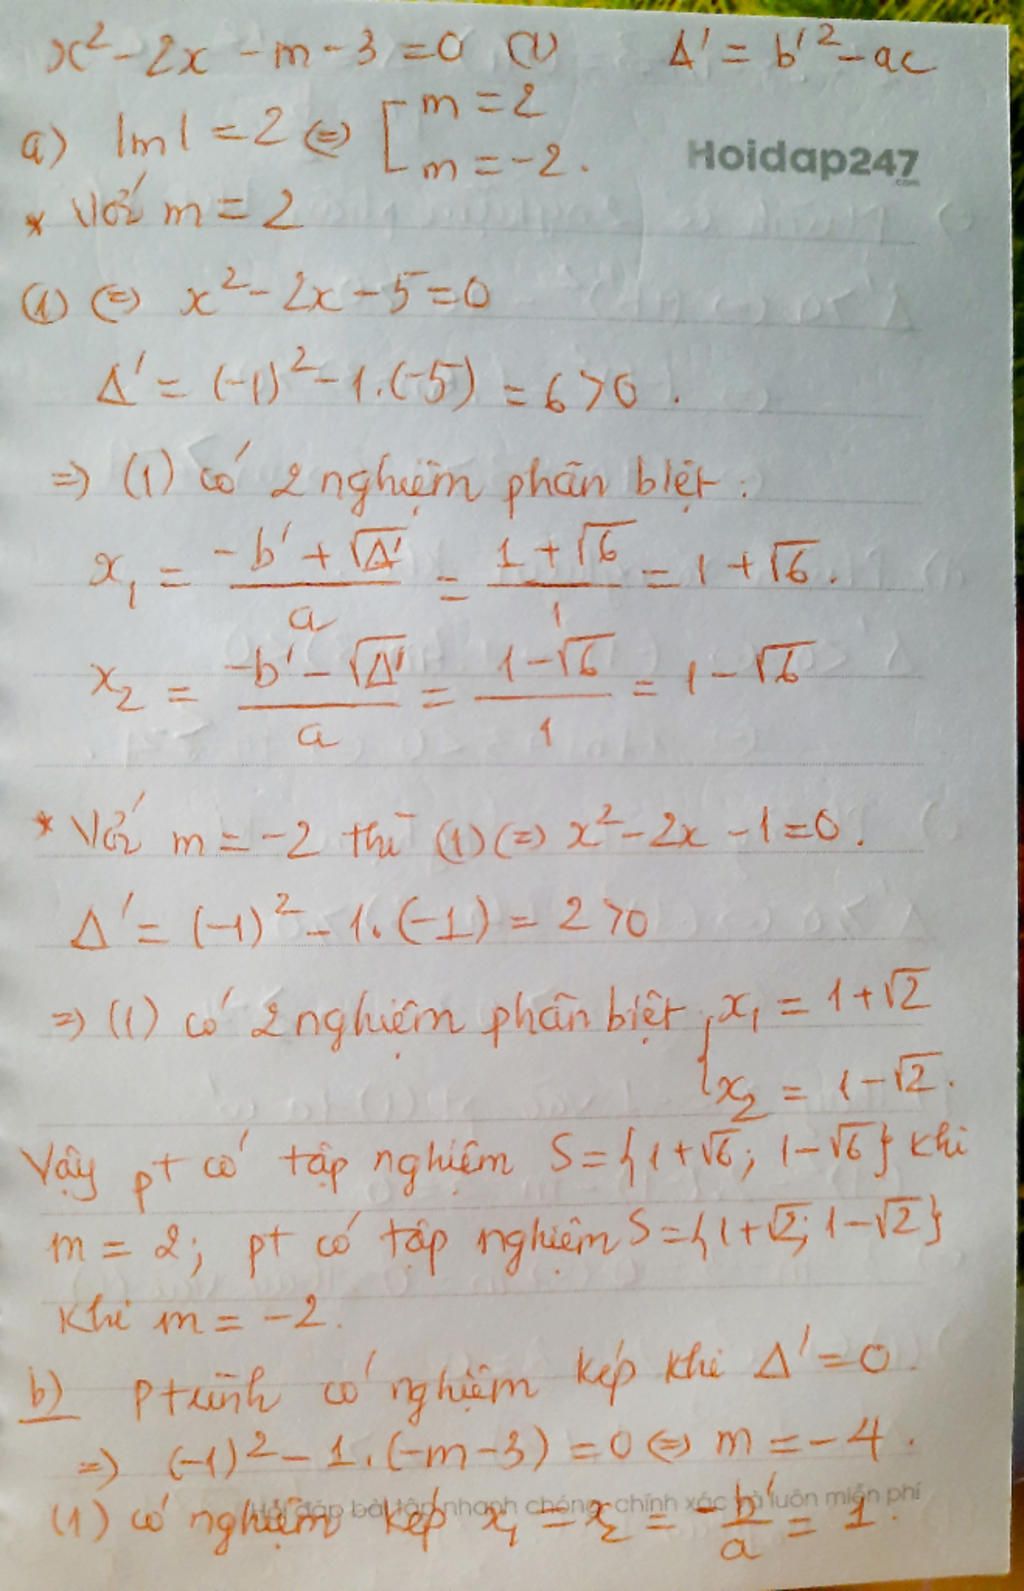 x² - 2x - m - 3 = 0 (1) Δ' = b'² - ac
a) |m| = 2 (=) [ m = 2
m = -2.
Hoidap247
.com
* Với m = 2
(1) (=) x² - 2x - 5 = 0
Δ' = (-1)² - 1.(-5) = 6 > 0.
=> (1) có 2 nghiệm phân biệt:
x₁ = (-b' + √Δ')/a = (1 + √6)/1 = 1 + √6.
x₂ = (-b' - √Δ')/a = (1 - √6)/1 = 1 - √6
* Với m = -2 thì (1) (=) x² - 2x - 1 = 0.
Δ' = (-1)² - 1.(-1) = 2 > 0
=> (1) có 2 nghiệm phân biệt { x₁ = 1 + √2
x₂ = 1 - √2.
Vậy pt có tập nghiệm S = {1 + √6; 1 - √6} khi
m = 2; pt có tập nghiệm S = {1 + √2; 1 - √2}
khi m = -2.
b) ptrình có nghiệm kép khi Δ' = 0
=> (-1)² - 1.(-m - 3) = 0 (=) m = -4.
Hỏi đáp bài tập nhanh chóng, chính xác và luôn miễn phí
(1) có nghiệm kép x₁ = x₂ = -b'/a = 1.